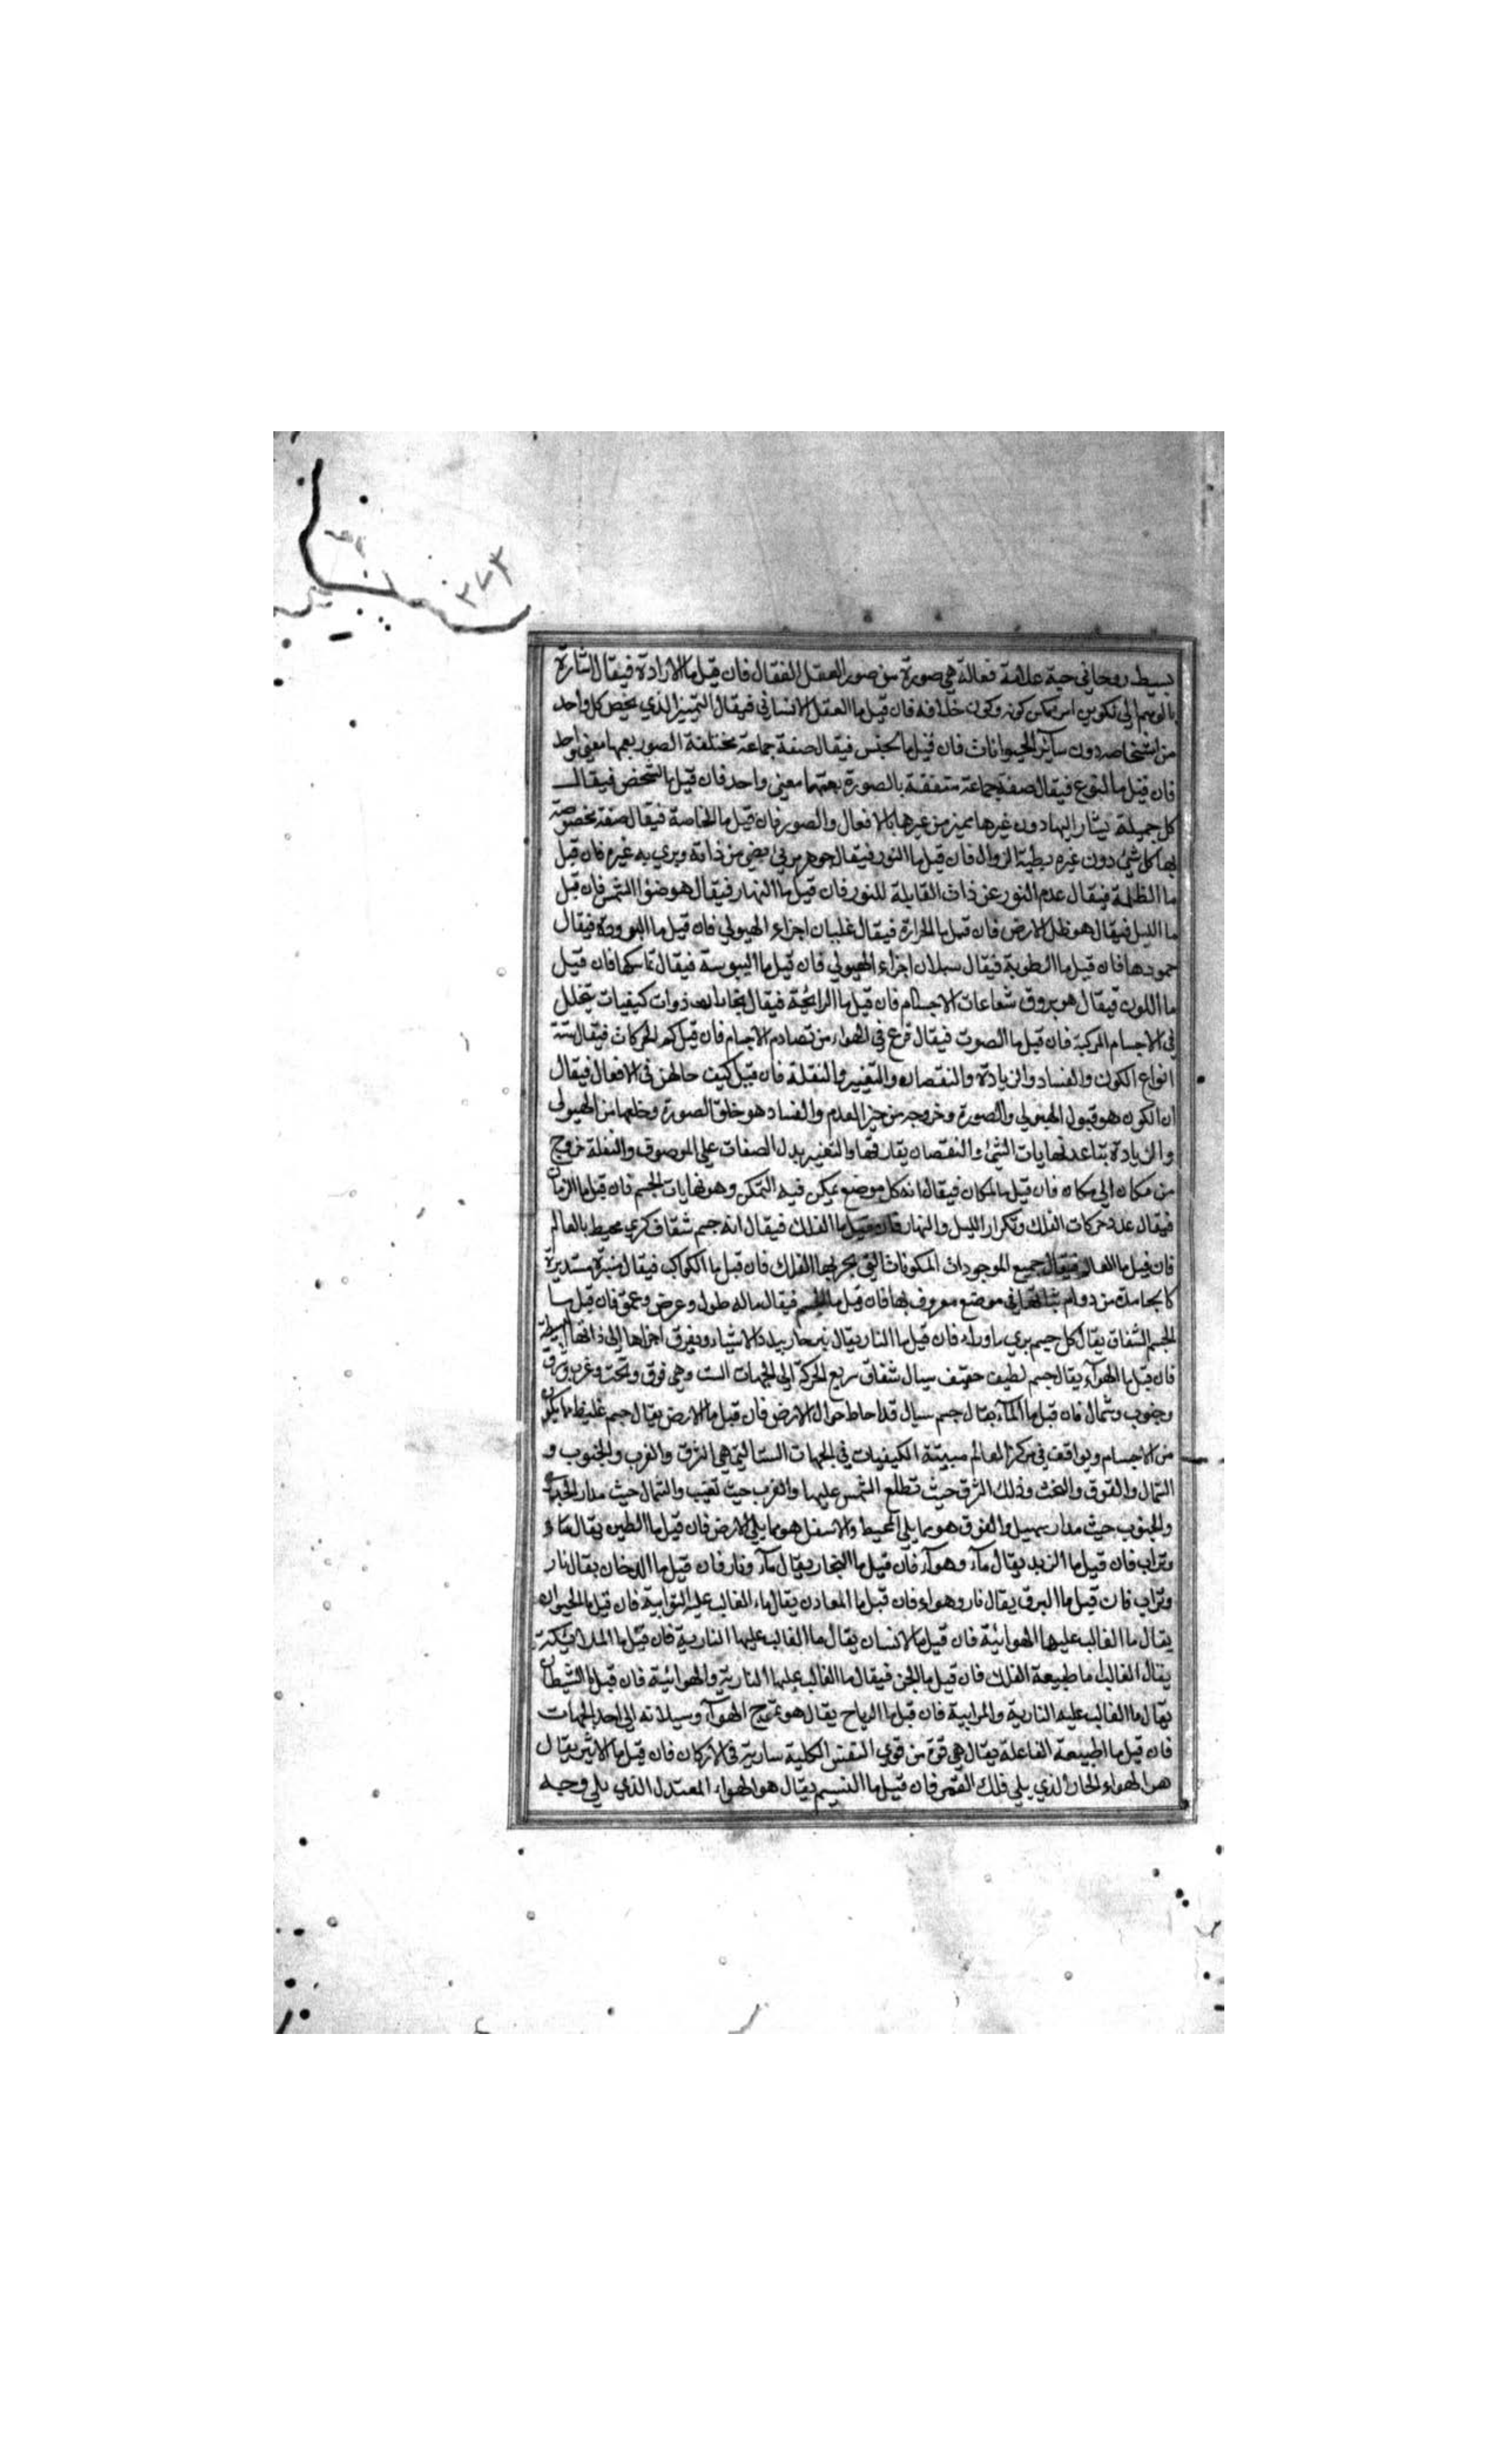 ٣٧٣
بسيط روحاني حية علامة فعالة هي صورة من صور العقل الفعال فان قيل ما الارادة فيقال اشارة
بالوهم الي تكوين امر يمكن كونه وكون خلافه فان قيل ما العقل الانساني فيقال التمييز الذي يخص كل واحد
من اشخاصه دون سائر الحيوانات فان قيل ما الجنس فيقال صفة جماعة مختلفة الصور يعمها معنى واحد
فان قيل ما النوع فيقال صفة جماعة متفقة بالصورة يعمها معني واحد فان قيل ما الشخص فيقال
كل جميلة يشار اليها دون غيرها يميز من غيرها بالافعال والصور فان قيل ما الخاصة فيقال صفة مخصوصة
بها كل شئ دون غيره بطيئة الزوال فان قيل ما النور فيقال جوهر مرئي يضئ من ذاته ويري به غيره فان قيل
ما الظلمة فيقال عدم النور عن ذات القابلة للنور فان قيل ما النهار فيقال هو ضوء الشمس فان قيل
ما الليل فيقال هو ظل الارض فان قيل ما الحرارة فيقال غليان اجزاء الهيولي فان قيل ما البرودة فيقال
جمودها فان قيل ما الرطوبة فيقال سيلان اجزاء الهيولي فان قيل ما اليبوسة فيقال تماسكها فان قيل
ما اللون فيقال هو بروق شعاعات الاجسام فان قيل ما الرائحة فيقال بخارات ذوات كيفيات يتحلل
في الاجسام المركبة فان قيل ما الصوت فيقال قرع في الهواء من تصادم الاجسام فان قيل كم الحركات فيقال ستة
انواع الكون والفساد والزيادة والنقصان والتغيير والنقلة فان قيل كيف حالهن في الافعال فيقال
ان الكون هو قبول الهيولي والصورة وخروجه من حيز العدم والفساد هو خلق الصورة وخلعها من الهيولي
والزيادة تباعد نهايات الشئ والنقصان يقارفها والتغيير بدل الصفات علي الموصوف والنقلة خروج
من مكان الي مكان فان قيل ما المكان فيقال انه كل موضع يمكن فيه التمكن وهو نهايات الجسم فان قيل ما الزمان
فيقال عدد حركات الفلك وتكرار الليل والنهار فان قيل ما الفلك فيقال انه جسم شفاف كري محيط بالعالم
فان قيل ما العالم فيقال جميع الموجودات المكونات التي يحويها الفلك فان قيل ما الكواكب فيقال نيرة مستديرة
كالجامدة من دوام ثباتها في موضع معروف بها فان قيل ما الجسم فيقال ماله طول وعرض وعمق فان قيل ما
الجسم الشفاف يقال كل جسم يري ما وراءه فان قيل ما النار يقال نير حار يبدد الاشياء ويفرق اجزاها الي ذاتها البسيطة
فان قيل ما الهوآء يقال جسم لطيف خفيف سيال شفاف سريع الحركة الي الجهات الست وهي فوق وتحت وغرب وشرق
وجنوب وشمال فان قيل ما المآء يقال جسم سيال قد احاط حول الارض فان قيل ما الارض يقال جسم غليظ ما يكون
من الاجسام وبواقف في مركز العالم مبيتة الكيفيات في الجهات الستة التي هي الشرق والغرب والجنوب و
الشمال والفوق والتحت وذلك الشرق حيث تطلع الشمس عليها والغرب حيث تغيب والشمال حيث مدار الجدي
والجنوب حيث مدار سهيل والفوق هو مما يلي المحيط والاسفل هو مما يلي الارض فان قيل ما الطين يقال ماء
وتراب فان قيل ما الزبد يقال مآء وهوآء فان قيل ما البخار يقال مآء ونار فان قيل ما الدخان يقال نار
وتراب فان قيل ما البرق يقال نار وهواء فان قيل ما المعادن يقال ماء الغالب عليه الترابية فان قيل ما الحيوان
يقال ما الغالب عليها الهوائية فان قيل ما الانسان يقال ما الغالب عليها النارية فان قيل ما الملائيكة
يقال الغالب ما طبيعة الفلك فان قيل ما الجن فيقال ما الغالب عليها النارية والهوائية فان قيل ما الشيطان
يقال ما الغالب عليه النارية والترابية فان قيل ما الرياح يقال هو تموج الهوآء وسيلانه الي احد الجهات
فان قيل ما الطبيعة الفاعلة يقال هي قوة من قوي النفس الكلية سارية في الاركان فان قيل ما الاثير يقال
هو الهواء الحار الذي يلي فلك القمر فان قيل ما النسيم يقال هو الهواء المعتدل الذي يلي وجه